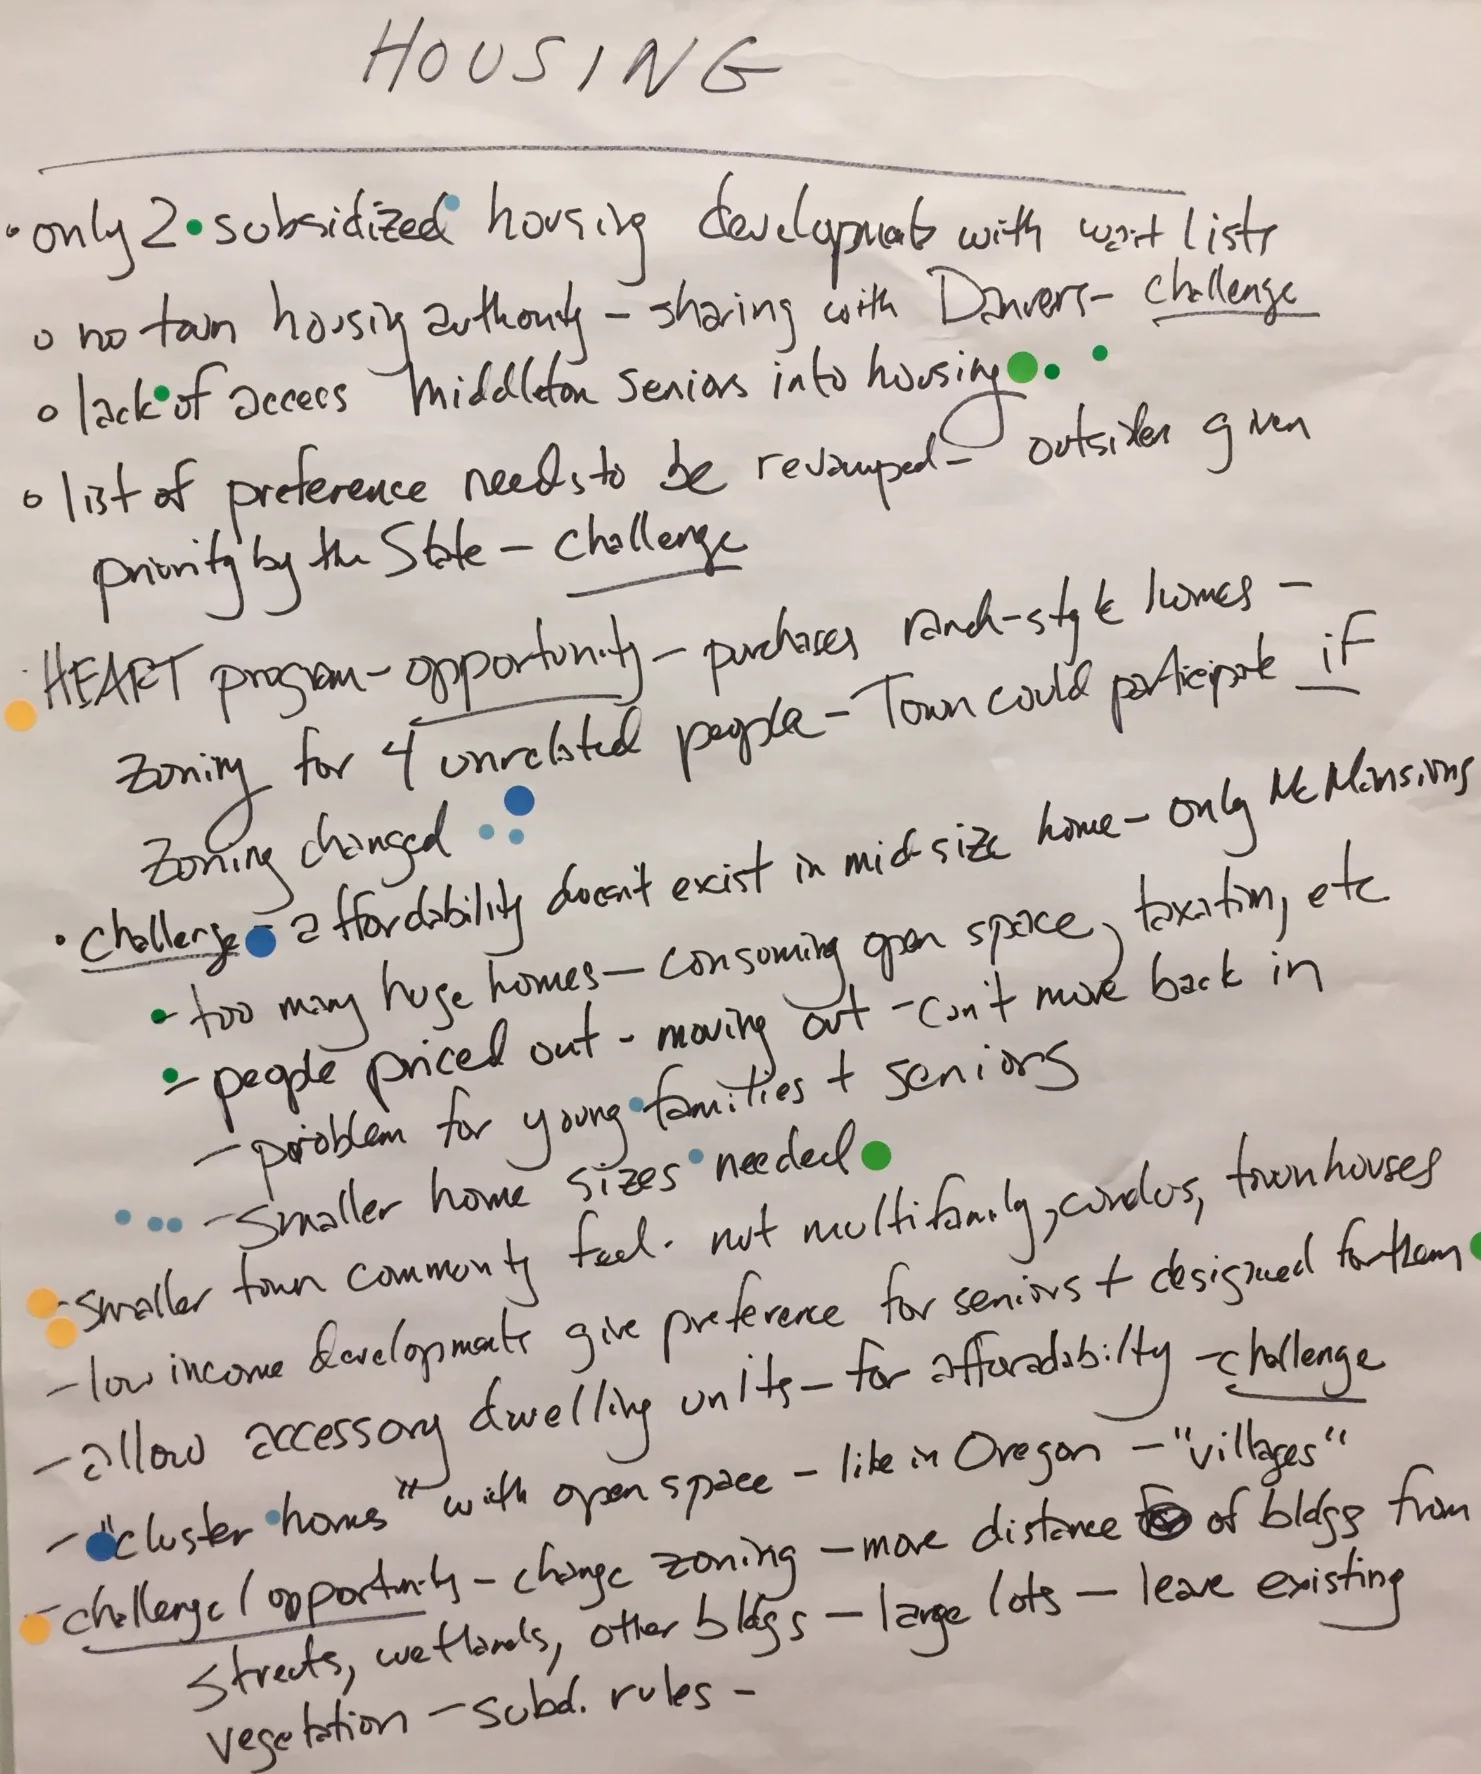 HOUSING
• only 2 subsidized housing developments with wait lists
o no town housing authority – sharing with Danvers – challenge
o lack of access Middleton Seniors into housing
o list of preference needs to be revamped – outsiders given
priority by the State – challenge
• HEART program – opportunity – purchases ranch-style homes –
zoning for 4 unrelated people – Town could participate if
zoning changed
• challenge – affordability doesn't exist in mid-size home – only McMansions
– too many huge homes – consuming open space, taxation, etc
– people priced out – moving out – can't move back in
– problem for young families + seniors
– smaller home sizes needed
– smaller town community feel. not multifamily, condos, townhouses
– low income developments give preference for seniors + designed for them
– allow accessory dwelling units – for afforadabilty – challenge
– "cluster homes" with open space – like in Oregon – "villages"
– challenge / opportunity – change zoning – more distance of bldgs from
streets, wetlands, other bldgs – large lots – leave existing
vegetation – subd. rules –